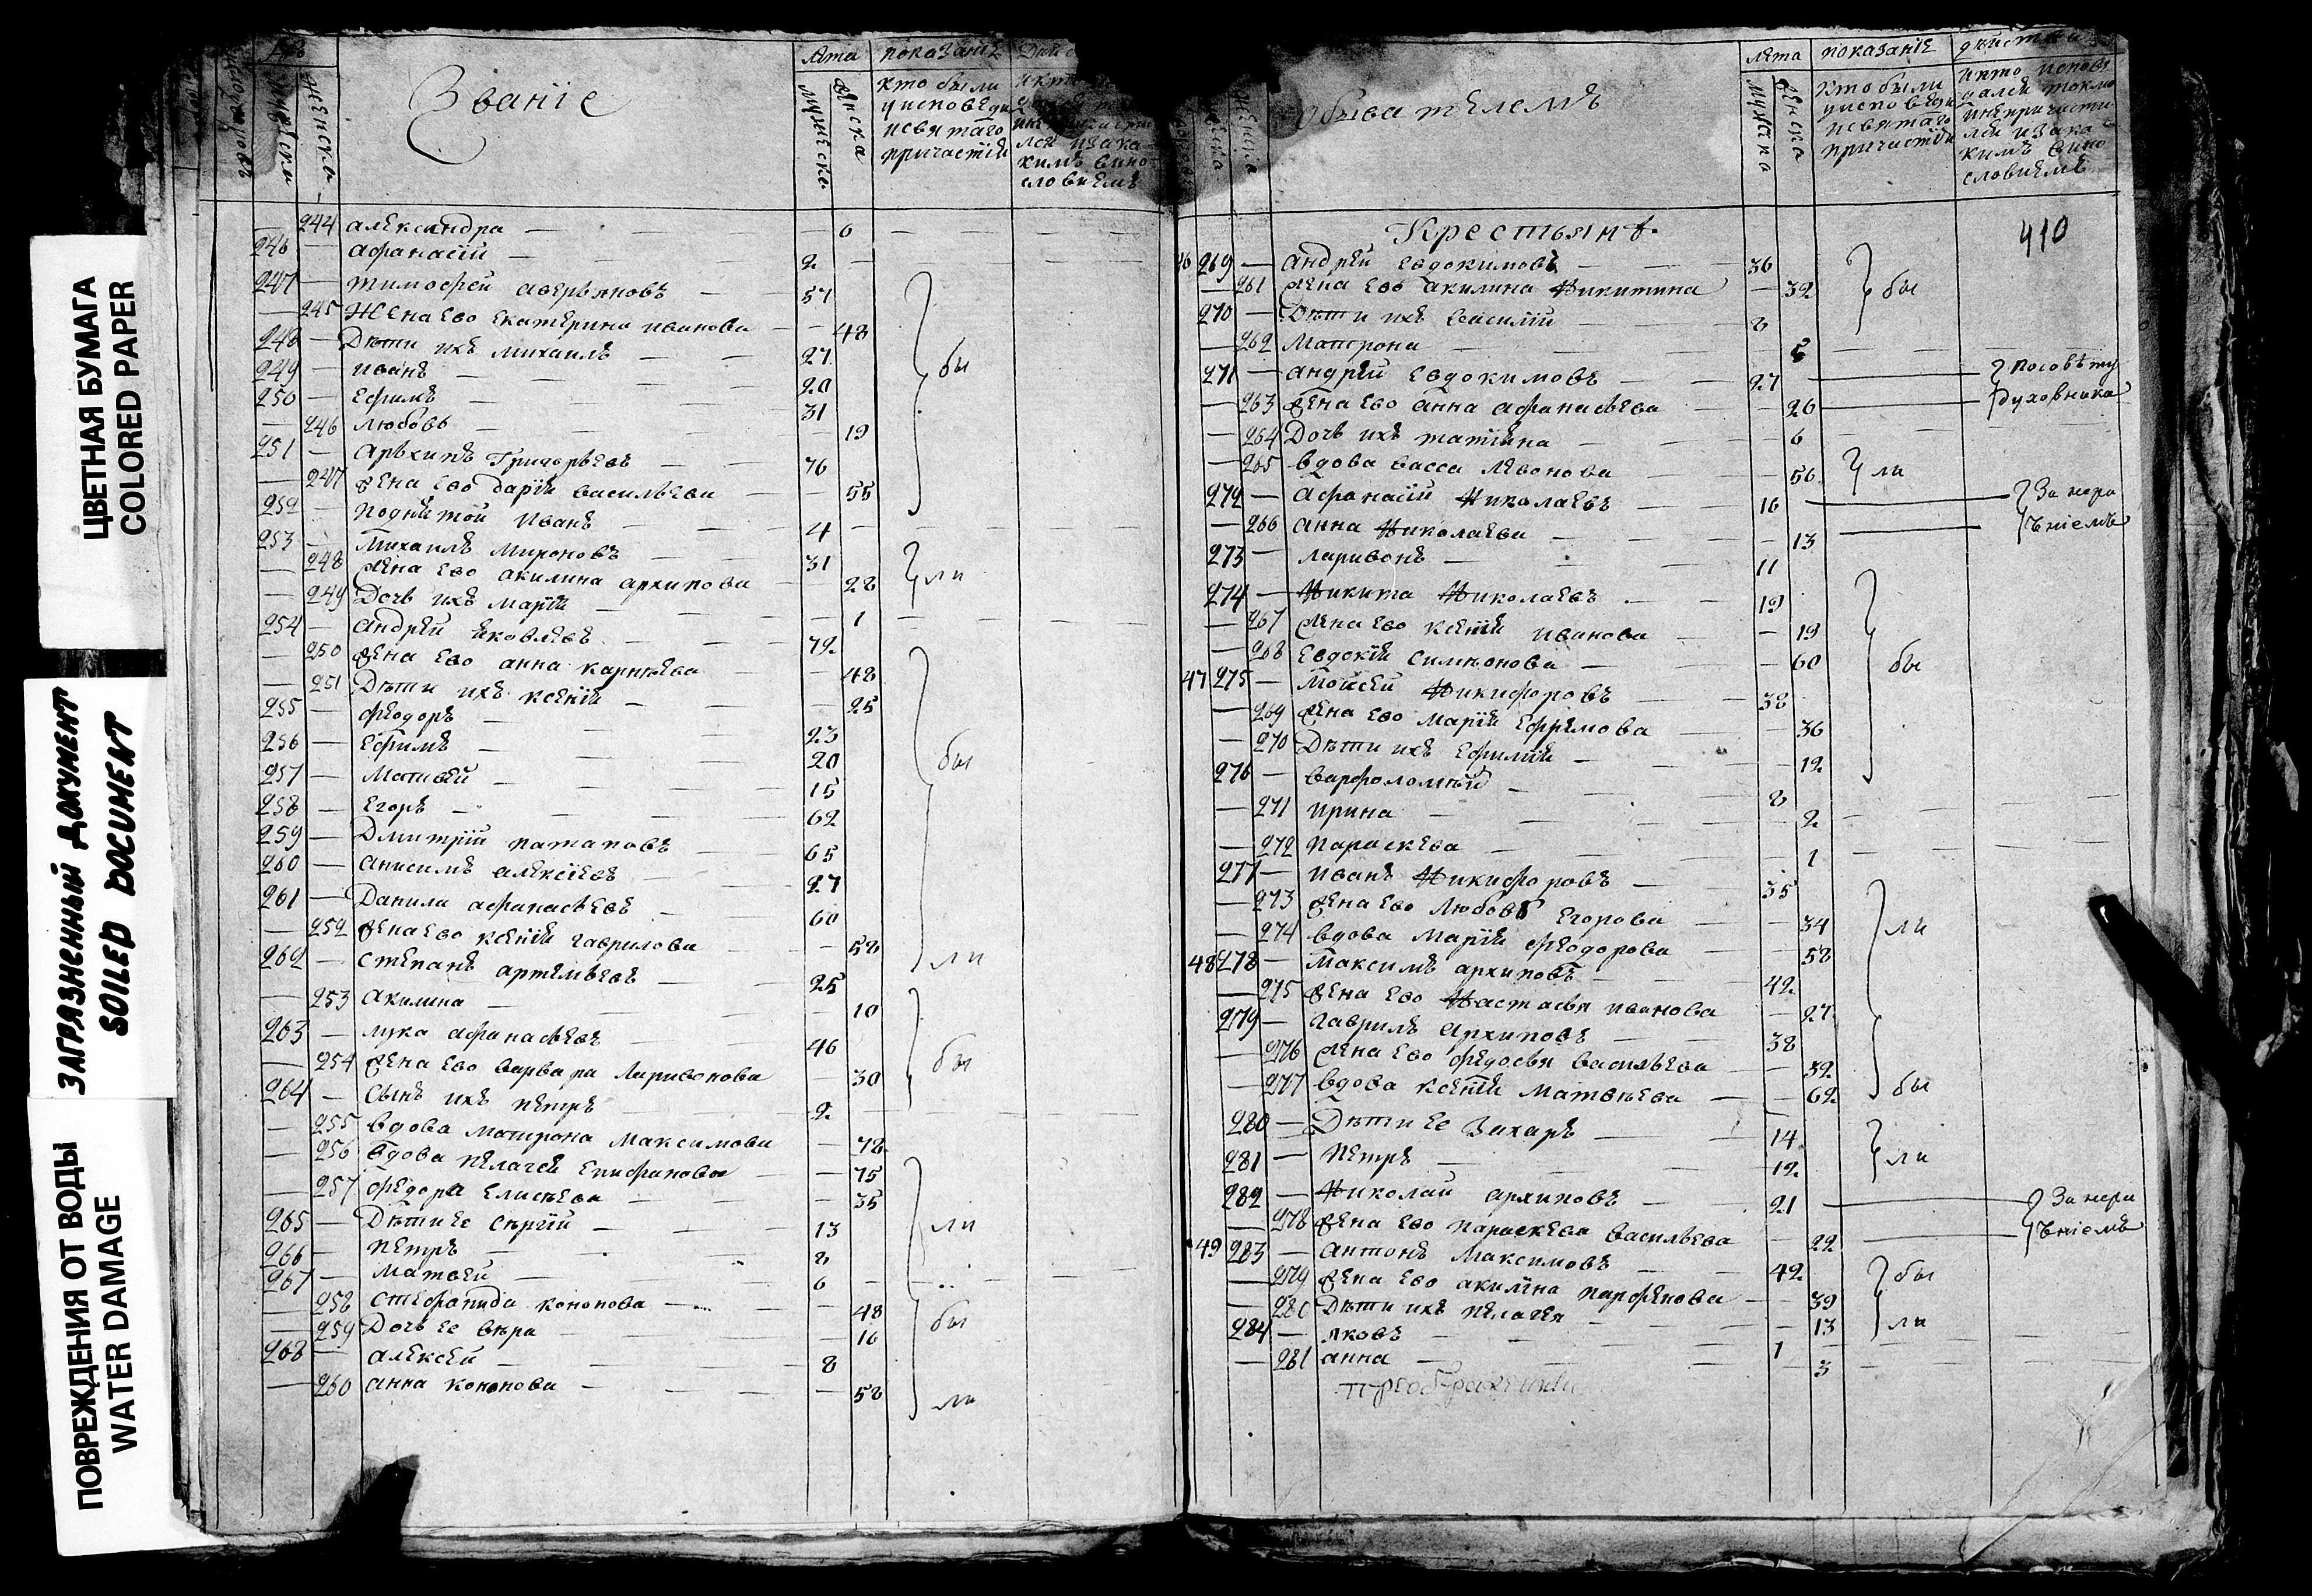 ЦВЕТНАЯ БУМАГА
COLORED PAPER
ЗАГРЯЗНЕННЫЙ ДОКУМЕНТ
SOILED DOCUMENT
ПОВРЕЖДЕНИЯ ОТ ВОДЫ
WATER DAMAGE
Званіе
лѣта
мужеска
женска
показаніе
кто были
у исповѣди
и святаго
причастія
мужеска
женска
244 александра — 6
246 — афанасій — 2
247 — тимофей аверьяновъ — 57
— 245 Жена ево екатерина иванова — 48
248 — Дѣти ихъ михаилъ — 27
249 — иванъ — 20
250 — ефимъ — 31
бы
— 246 любовь — 19
251 — архипъ григорьевъ — 76
— 247 жена ево дарія васильева — 55
252 — поднятой иванъ — 4
253 — михаилъ мироновъ — 31
— 248 жена ево акилина архипова — 28
ли
— 249 Дочь ихъ марія — 1
254 — андрей яковлевъ — 72
— 250 жена ево анна карнѣева — 48
— 251 Дѣти ихъ ксенія — 25
255 — феодоръ — 23
256 — ефимъ — 20
бы
257 — матвей — 15
258 — егоръ — 62
259 — Дмитрій патаповъ — 65
260 — анисимъ алексіевъ — 27
261 — Данила афанасьевъ — 60
— 252 жена ево ксенія гаврилова — 58
262 — степанъ артемьевъ — 25
ли
— 253 акилина — 10
263 — лука афанасьевъ — 46
— 254 жена ево варвара ларивонова — 30
бы
264 — Сынъ ихъ петръ — 2
— 255 вдова матрона максимова — 78
— 256 вдова пелагея епифанова — 75
— 257 федора елисѣева — 35
265 — Дѣти ее сергій — 13
ли
266 — петръ — 8
267 — матвей — 6
— 258 стефанида кононова — 48
бы
— 259 Дочь ее вѣра — 16
268 — алексей — 8
— 260 анна кононова — 58
ли
обывателемъ
лѣта
мужеска
женска
показаніе
кто были
у исповѣди
и святаго
причастія
и кто исповѣ
дался токмо
и не причасти
лся и за ка
кимъ вино
словиемъ
Крестьянѣ
410
46 269 — андрей евдокимовъ — 36
— 261 жена ево акилина никитина — 32
бы
270 — Дѣти ихъ василій — 8
— 262 матрона — 5
271 — андрей евдокимовъ — 27 — по совѣту
— 263 жена ево анна афанасьева — 26 — духовника
— 264 Дочь ихъ татіяна — 6
— 265 вдова васса левонова — 56
ли
272 — афанасій николаевъ — 16 — За нера
— 266 анна николаева — 13 — ѣніемъ
273 — ларивонъ — 11
274 — никита николаевъ — 19
— 267 жена ево ксенія иванова — 19
— 268 евдокія симионова — 60
бы
47 275 — мойсей никифоровъ — 38
— 269 жена ево марія ефремова — 36
— 270 Дѣти ихъ ефимія — 12
276 — варфоломей — 8
— 271 ирина — 2
— 272 параскева — 1
277 — иванъ никифоровъ — 35
— 273 жена ево любовь егорова — 34
ли
— 274 вдова марія феодорова — 58
48 278 — максимъ архиповъ — 42
— 275 жена ево настасья иванова — 27
279 — гаврилъ архиповъ — 38
— 276 жена ево федосья васильева — 32
— 277 вдова ксенія матвѣева — 62
бы
280 — Дѣти ее захаръ — 14
281 — петръ — 12
ли
282 — николай архиповъ — 21 — За нера
— 278 жена ево параскева васильева — 22 — ѣніемъ
49 283 — антонъ максимовъ — 42
бы
— 279 жена ево акилина парфенова — 39
— 280 Дѣти ихъ пелагея — 13
ли
284 — яковъ — 1
— 281 анна — 3